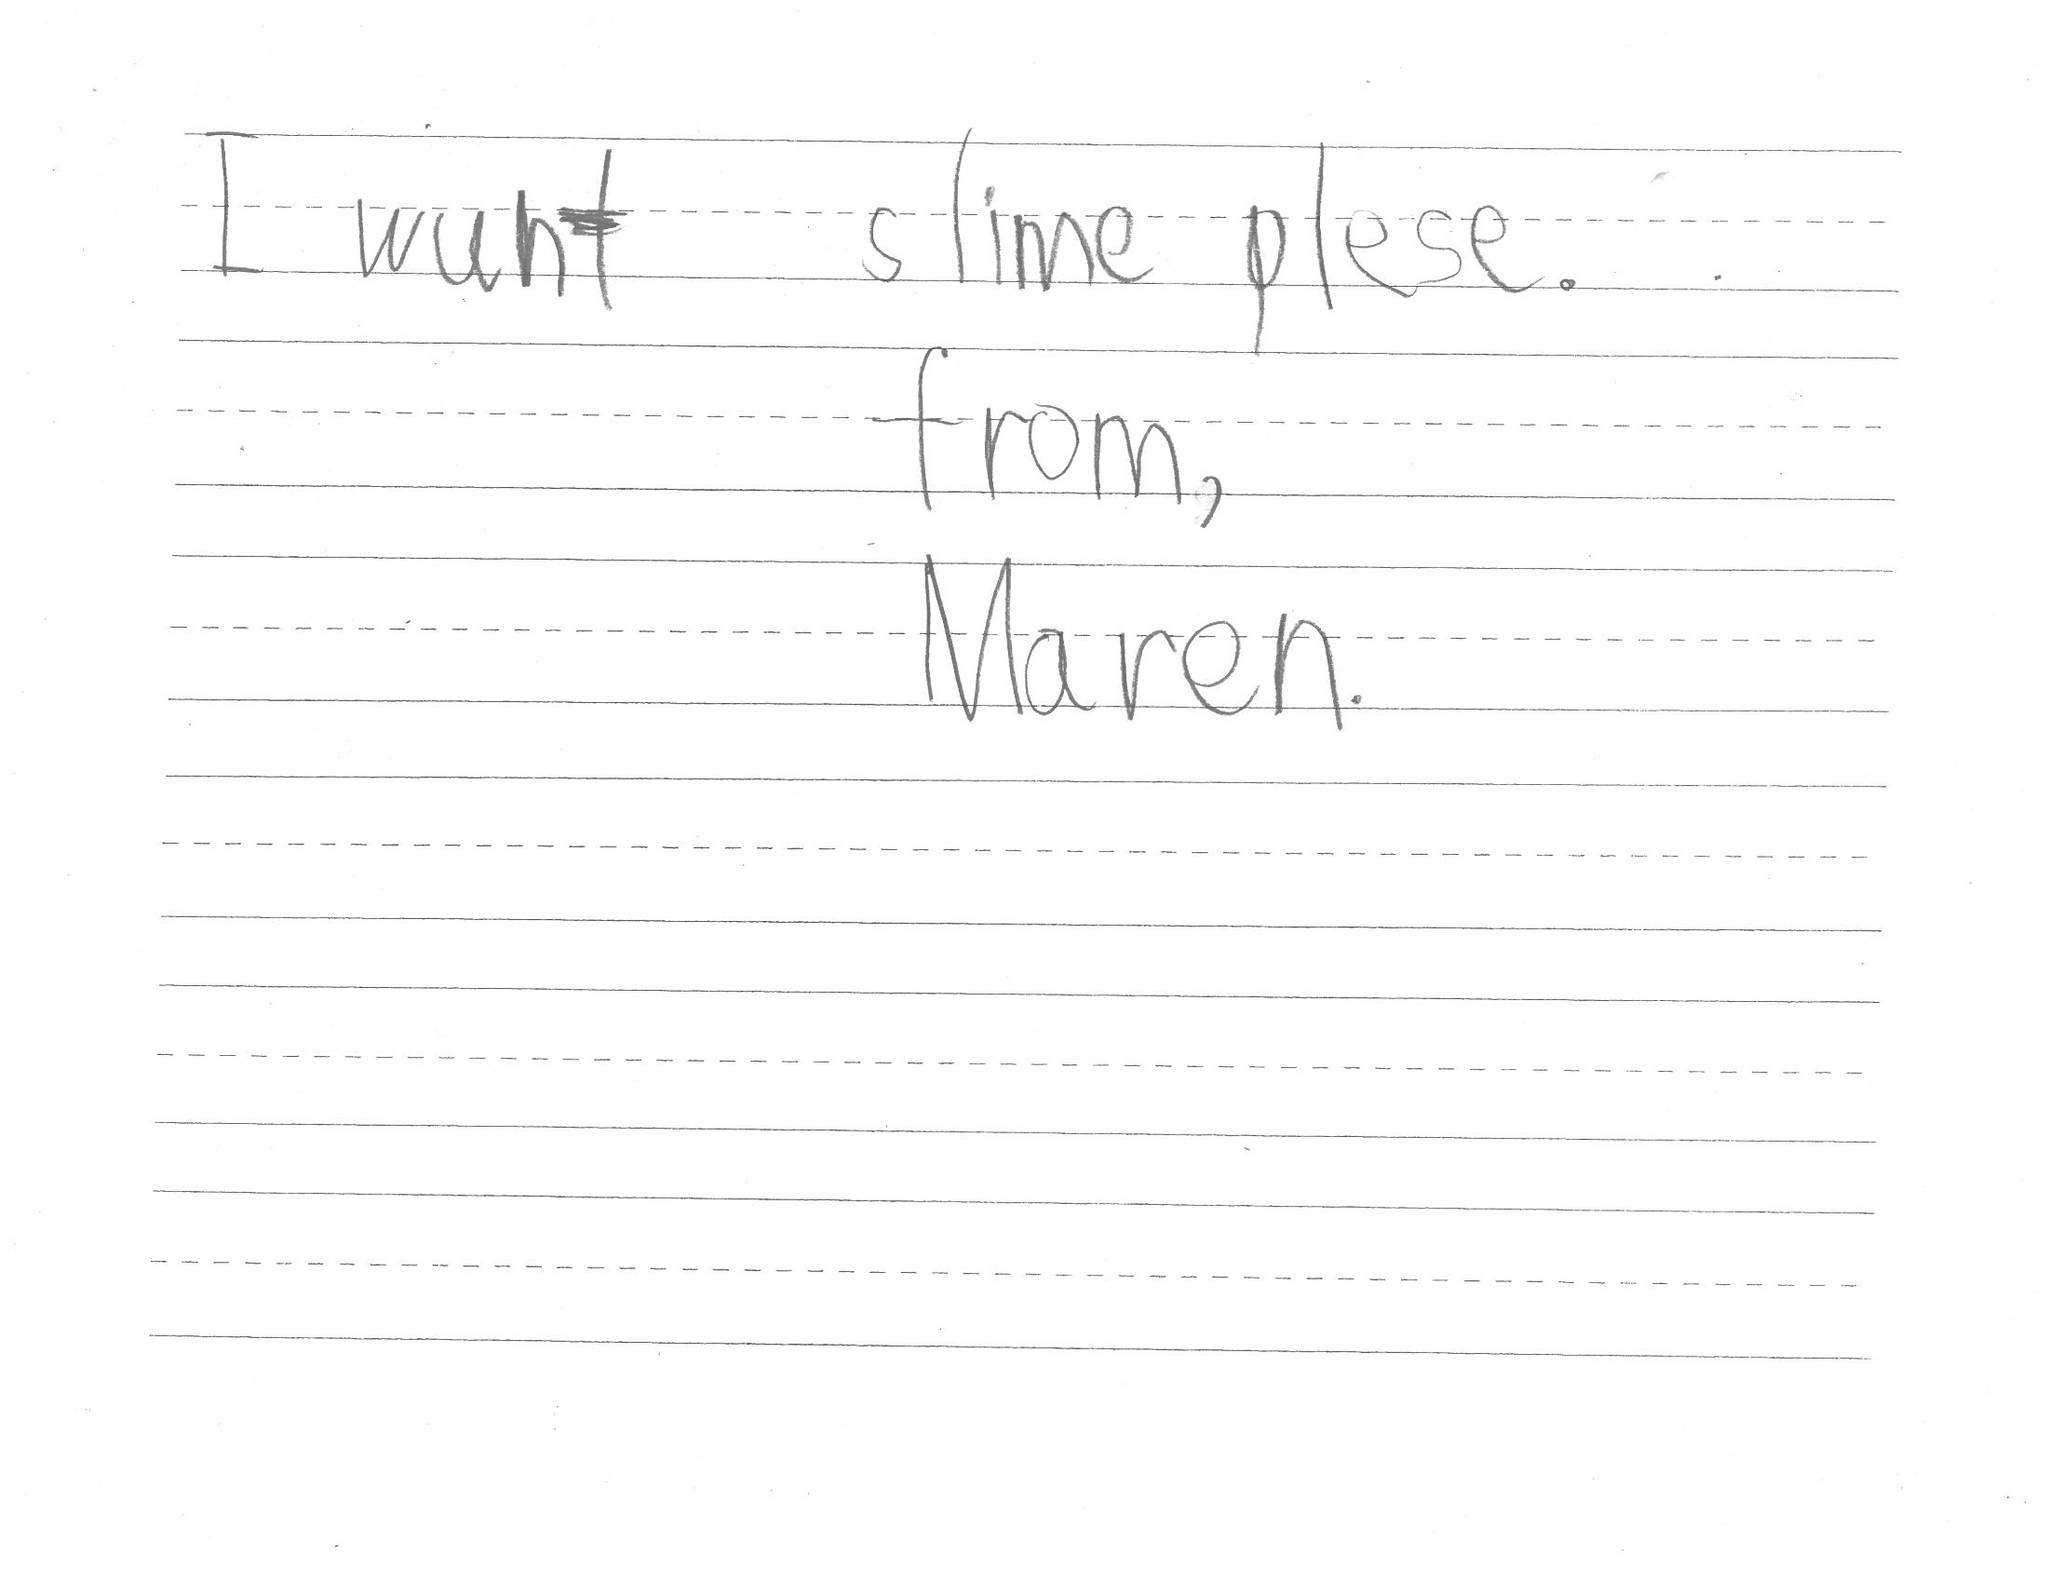 I wunt slime plese.
from,
Maren.